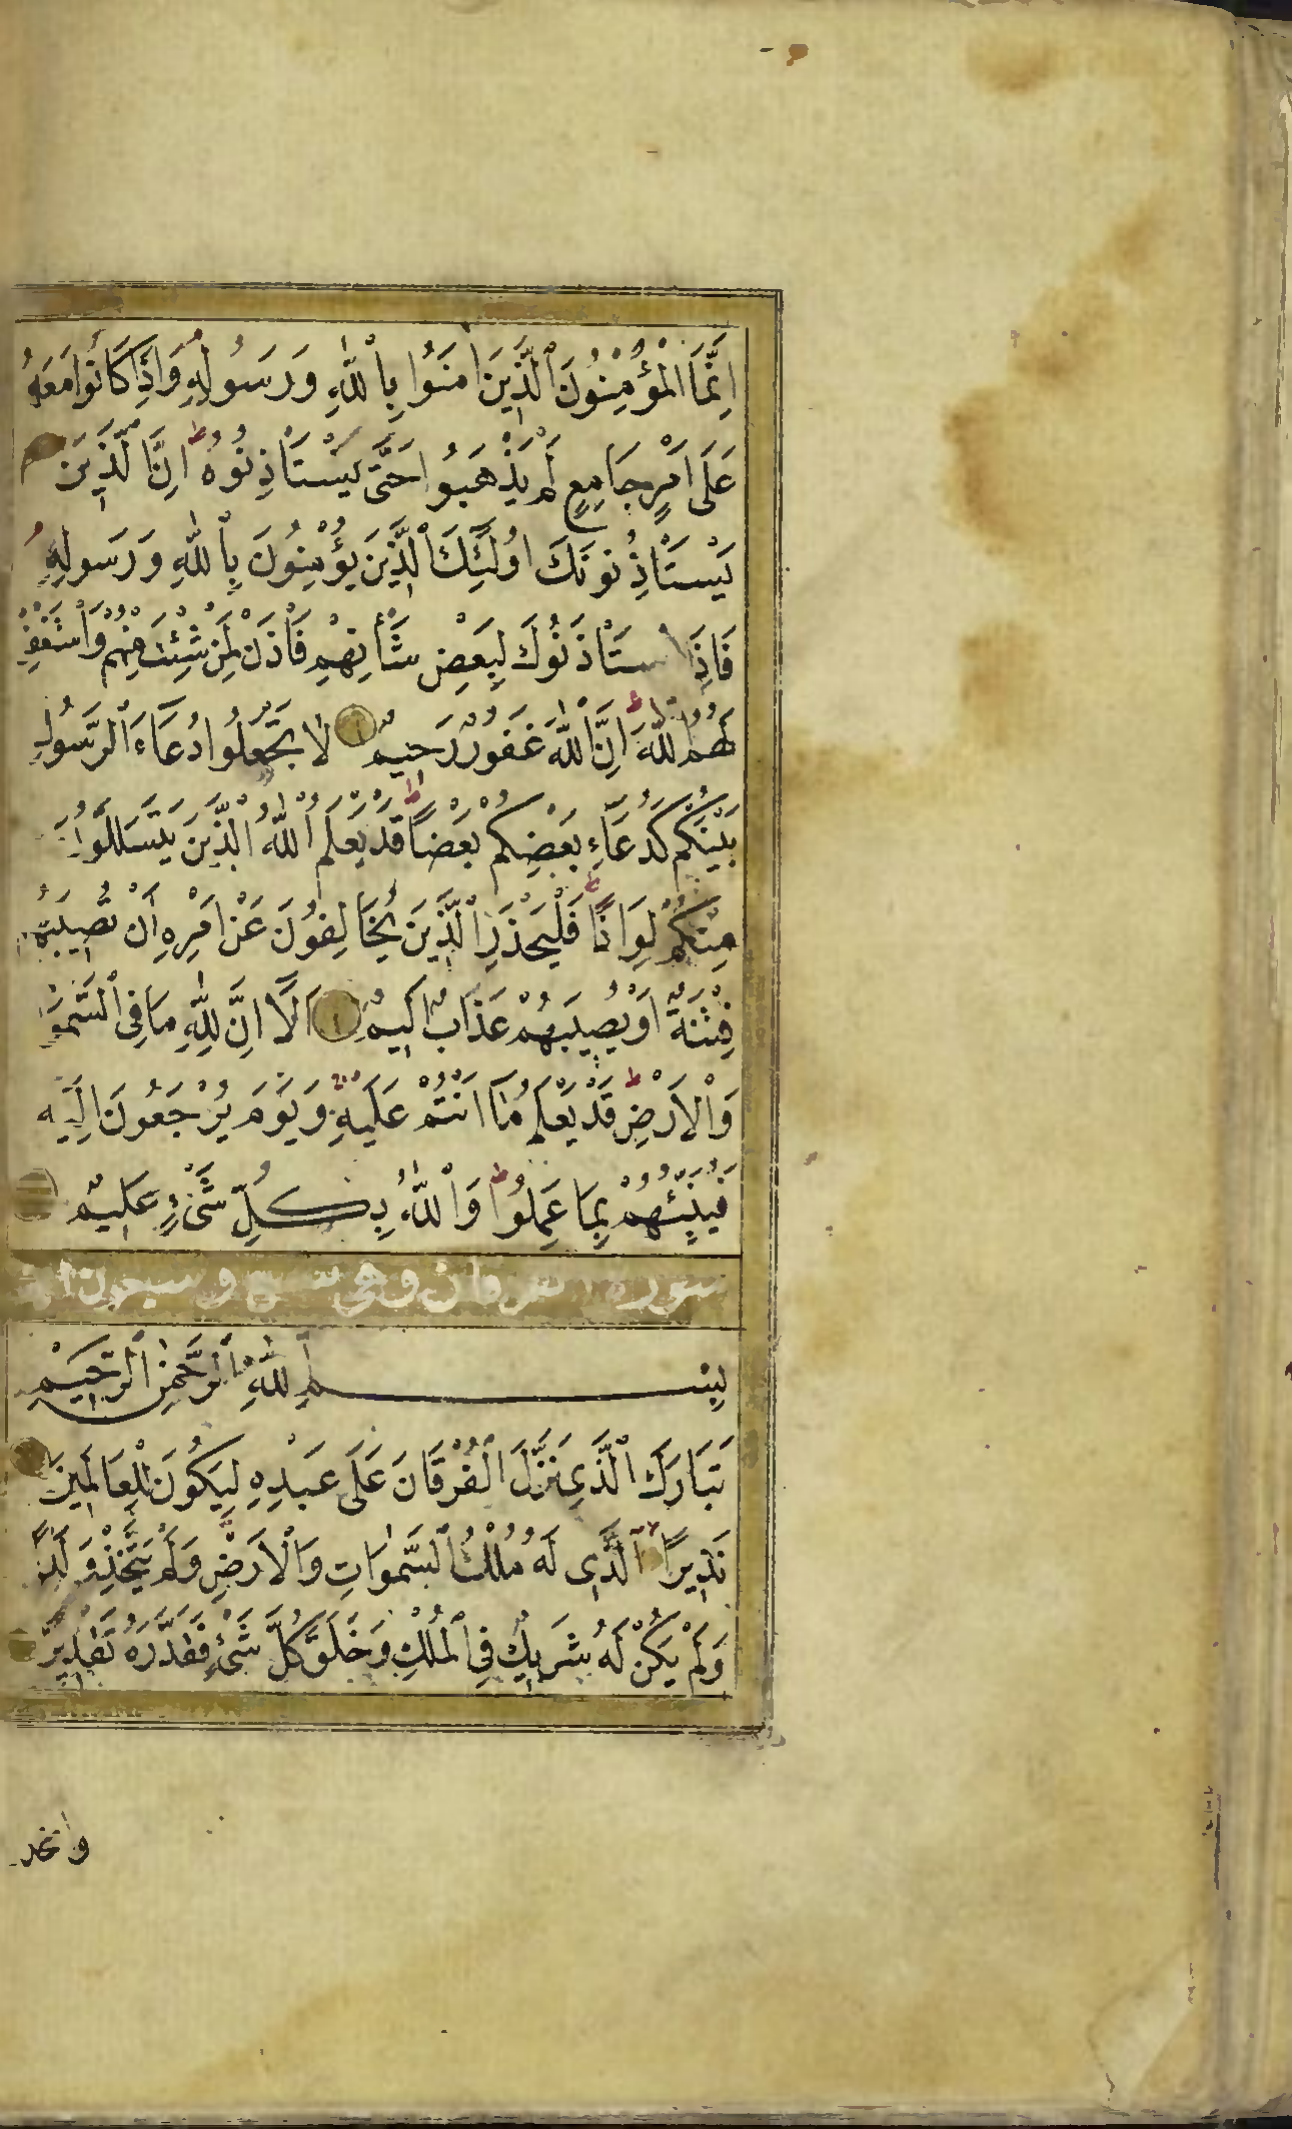 اِنَّمَا الْمُؤْمِنُونَ ٱلَّذِينَ اٰمَنُوا بِٱللّٰهِ وَرَسُولِهِ وَاِذَا كَانُوا مَعَهُ
عَلَى اَمْرٍ جَامِعٍ لَمْ يَذْهَبُوا حَتَّى يَسْتَاْذِنُوهُ ط اِنَّ الَّذِينَ
يَسْتَاْذِنُونَكَ اُولٰٓئِكَ ٱلَّذِينَ يُؤْمِنُونَ بِٱللّٰهِ وَرَسُولِهِ
فَاِذَا اسْتَاْذَنُوكَ لِبَعْضِ شَأْنِهِمْ فَأْذَنْ لِمَنْ شِئْتَ مِنْهُمْ وَٱسْتَغْفِرْ
لَهُمُ ٱللّٰهَ ط اِنَّ ٱللّٰهَ غَفُورٌ رَحِيمٌ لَا تَجْعَلُوا دُعَاءَ ٱلرَّسُولِ
بَيْنَكُمْ كَدُعَاءِ بَعْضِكُمْ بَعْضًا ط قَدْ يَعْلَمُ ٱللّٰهُ ٱلَّذِينَ يَتَسَلَّلُونَ
مِنْكُمْ لِوَاذًا ج فَلْيَحْذَرِ ٱلَّذِينَ يُخَالِفُونَ عَنْ اَمْرِهِ اَنْ تُصِيبَهُمْ
فِتْنَةٌ اَوْ يُصِيبَهُمْ عَذَابٌ اَلِيمٌ اَلَآ اِنَّ لِلّٰهِ مَا فِى ٱلسَّمٰوَا
وَٱلْاَرْضِ ط قَدْ يَعْلَمُ مَآ اَنْتُمْ عَلَيْهِ وَيَوْمَ يُرْجَعُونَ اِلَيْهِ
فَيُنَبِّئُهُمْ بِمَا عَمِلُوا ط وَٱللّٰهُ بِكُلِّ شَىْءٍ عَلِيمٌ
سورة الفرقان وهى سبع وسبعون اية
بِسْمِ ٱللّٰهِ ٱلرَّحْمٰنِ ٱلرَّحِيمِ
تَبَارَكَ ٱلَّذِى نَزَّلَ ٱلْفُرْقَانَ عَلَى عَبْدِهِ لِيَكُونَ لِلْعَالَمِينَ
نَذِيرًا ٱلَّذِى لَهُ مُلْكُ ٱلسَّمٰوَاتِ وَٱلْاَرْضِ وَلَمْ يَتَّخِذْ وَلَدًا
وَلَمْ يَكُنْ لَهُ شَرِيكٌ فِى ٱلْمُلْكِ وَخَلَقَ كُلَّ شَىْءٍ فَقَدَّرَهُ تَقْدِيرًا
واتخذ